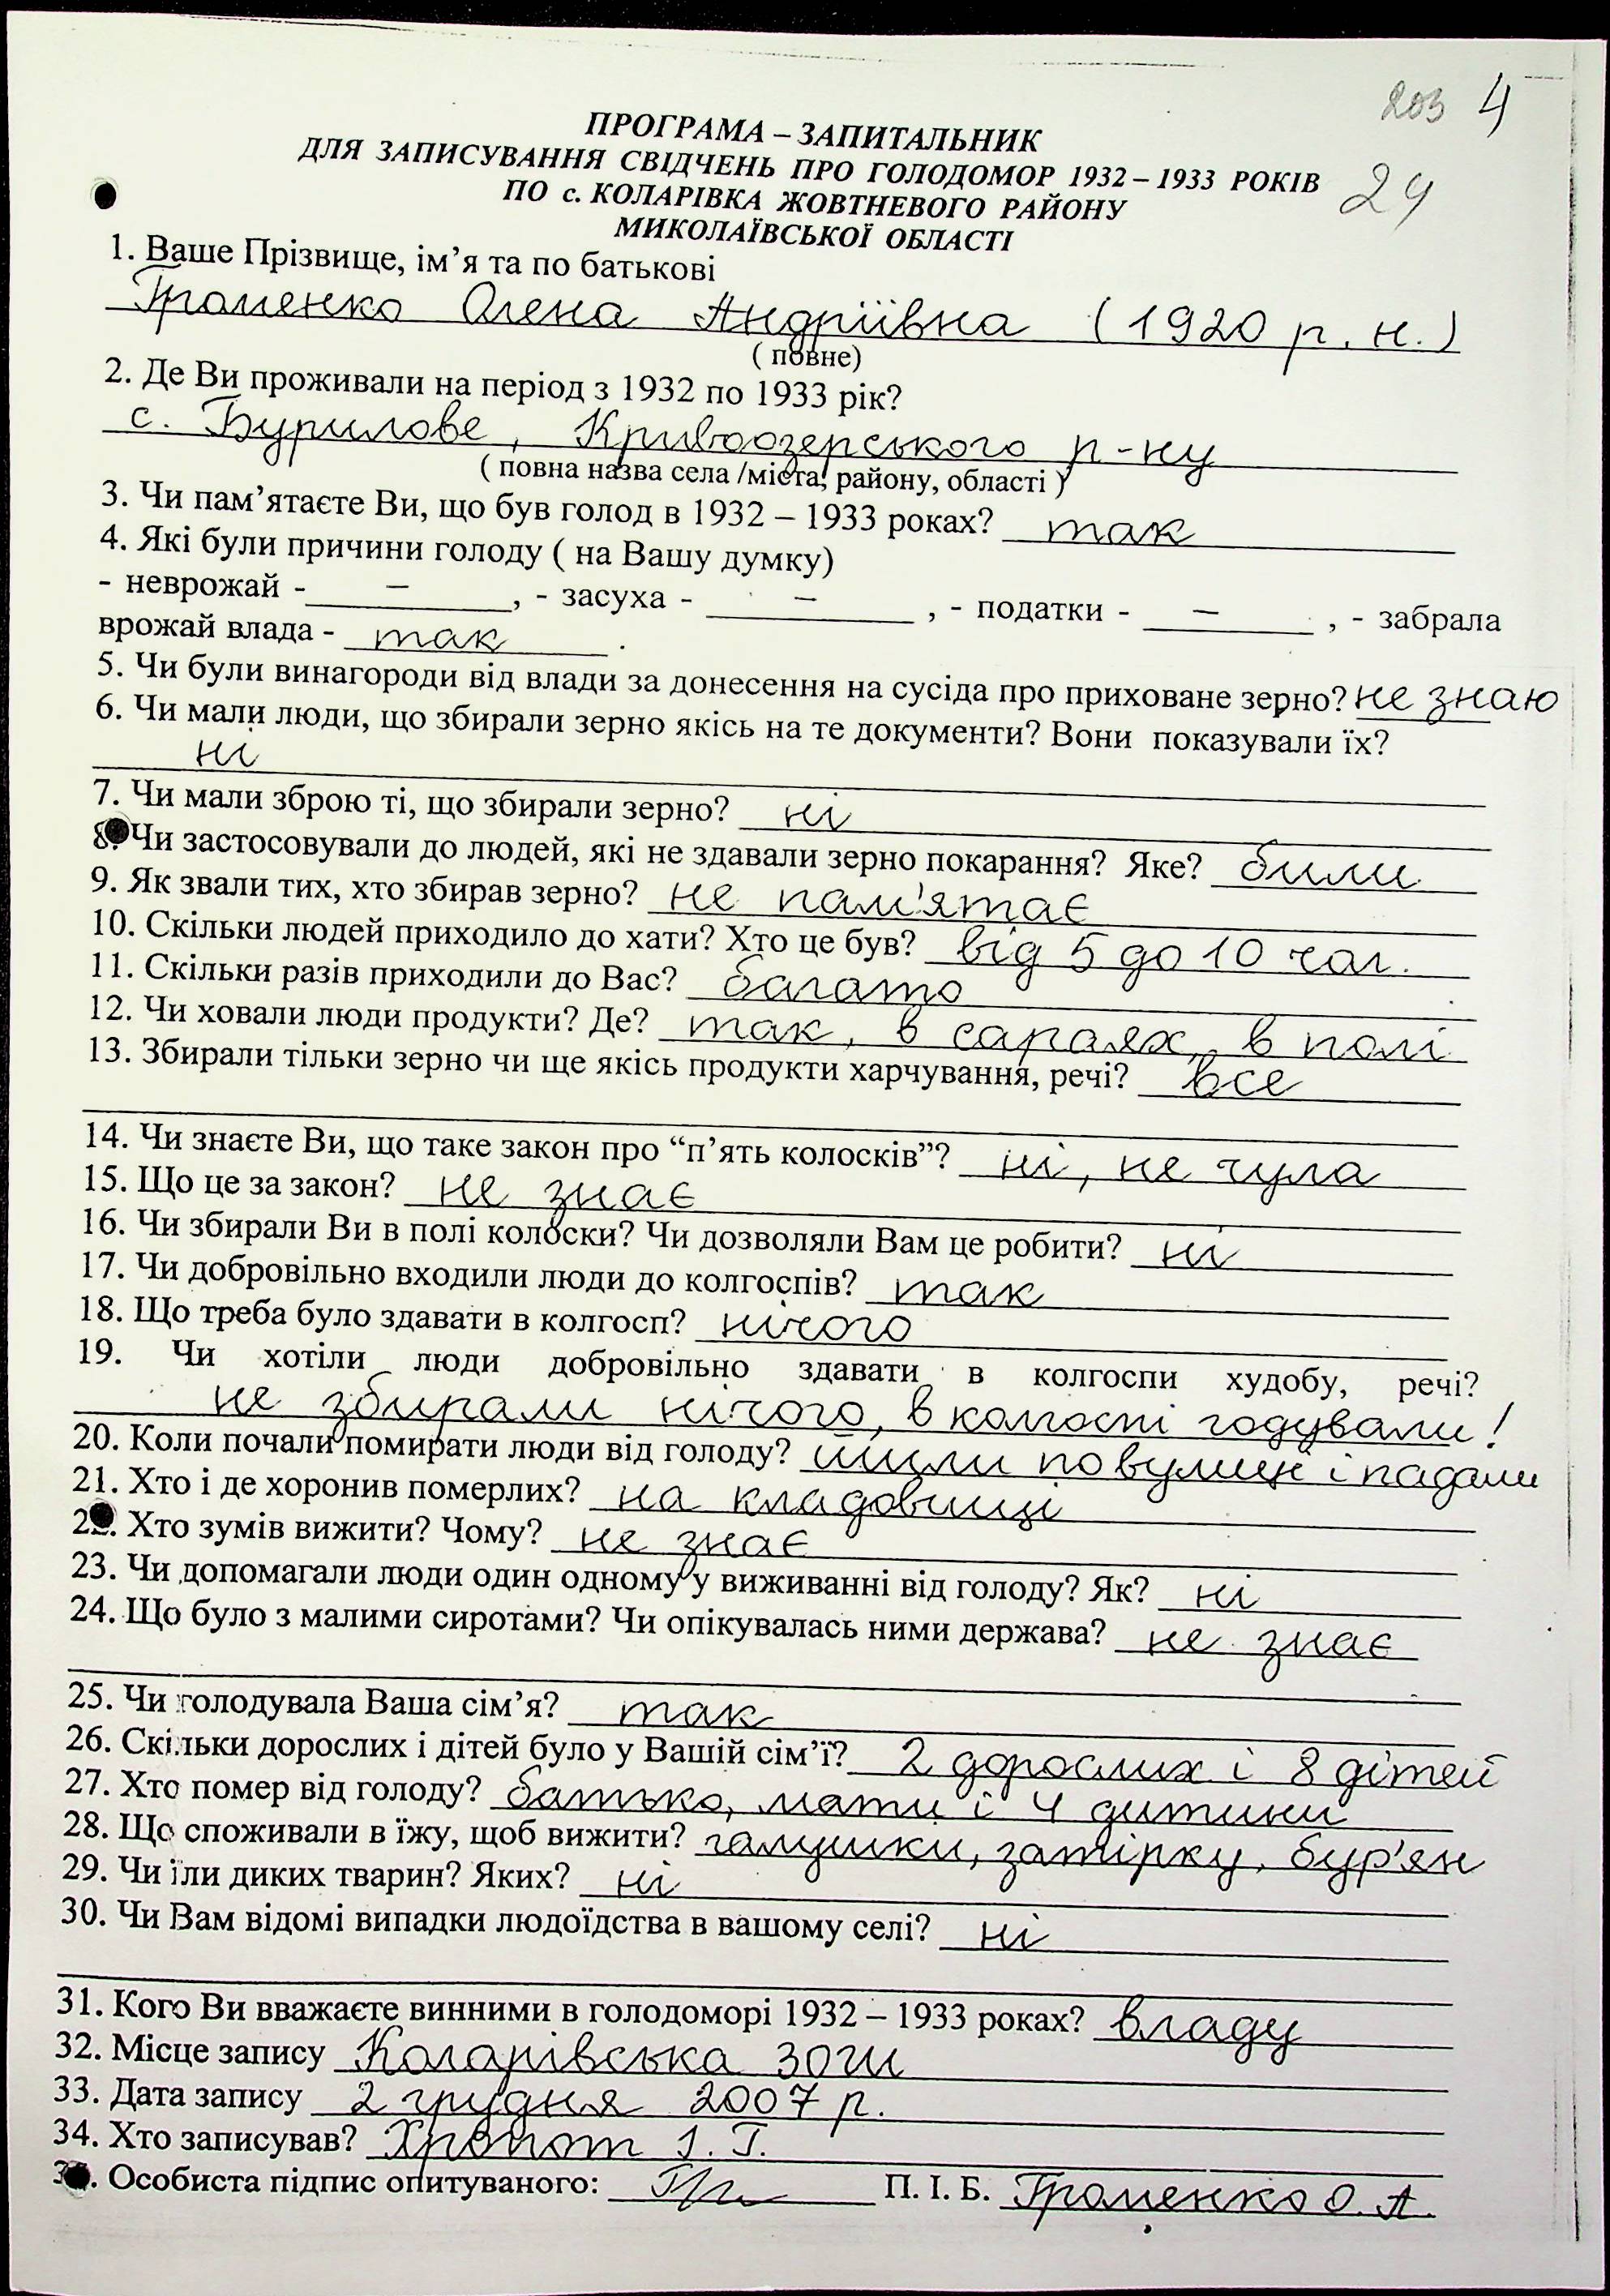 203 4
ПРОГРАМА – ЗАПИТАЛЬНИК
ДЛЯ ЗАПИСУВАННЯ СВІДЧЕНЬ ПРО ГОЛОДОМОР 1932 – 1933 РОКІВ
24
ПО с. КОЛАРІВКА ЖОВТНЕВОГО РАЙОНУ
МИКОЛАЇВСЬКОЇ ОБЛАСТІ
1. Ваше Прізвище, ім’я та по батькові
Громенко Олена Андріївна (1920 р. н.)
( повне)
2. Де Ви проживали на період з 1932 по 1933 рік?
с. Бурилове, Кривоозерського р-ну
( повна назва села /міста, району, області )
3. Чи пам’ятаєте Ви, що був голод в 1932 – 1933 роках? так
4. Які були причини голоду ( на Вашу думку)
- неврожай - –, - засуха - – , - податки - – , - забрала
врожай влада - так .
5. Чи були винагороди від влади за донесення на сусіда про приховане зерно? не знаю
6. Чи мали люди, що збирали зерно якісь на те документи? Вони показували їх?
ні
7. Чи мали зброю ті, що збирали зерно? ні
8. Чи застосовували до людей, які не здавали зерно покарання? Яке? били
9. Як звали тих, хто збирав зерно? не пам'ятає
10. Скільки людей приходило до хати? Хто це був? від 5 до 10 чол.
11. Скільки разів приходили до Вас? багато
12. Чи ховали люди продукти? Де? так, в сараях, в полі
13. Збирали тільки зерно чи ще якісь продукти харчування, речі? все
14. Чи знаєте Ви, що таке закон про “п’ять колосків”? ні, не чула
15. Що це за закон? не знає
16. Чи збирали Ви в полі колоски? Чи дозволяли Вам це робити? ні
17. Чи добровільно входили люди до колгоспів? так
18. Що треба було здавати в колгосп? нічого
19. Чи хотіли люди добровільно здавати в колгоспи худобу, речі?
не збирали нічого, в колгоспі годували!
20. Коли почали помирати люди від голоду? йшли по вулиці і падали
21. Хто і де хоронив померлих? на кладовищі
22. Хто зумів вижити? Чому? не знає
23. Чи допомагали люди один одному у виживанні від голоду? Як? ні
24. Що було з малими сиротами? Чи опікувалась ними держава? не знає
25. Чи голодувала Ваша сім’я? так
26. Скільки дорослих і дітей було у Вашій сім’ї? 2 дорослих і 8 дітей
27. Хто помер від голоду? батько, мати і 4 дитини
28. Що споживали в їжу, щоб вижити? галушки, затірку, бур'ян
29. Чи їли диких тварин? Яких? ні
30. Чи Вам відомі випадки людоїдства в вашому селі? ні
31. Кого Ви вважаєте винними в голодоморі 1932 – 1933 роках? владу
32. Місце запису Коларівська ЗОШ
33. Дата запису 2 грудня 2007 р.
34. Хто записував? Хропот І. Г.
. Особиста підпис опитуваного: П. І. Б. Громенко О. А.